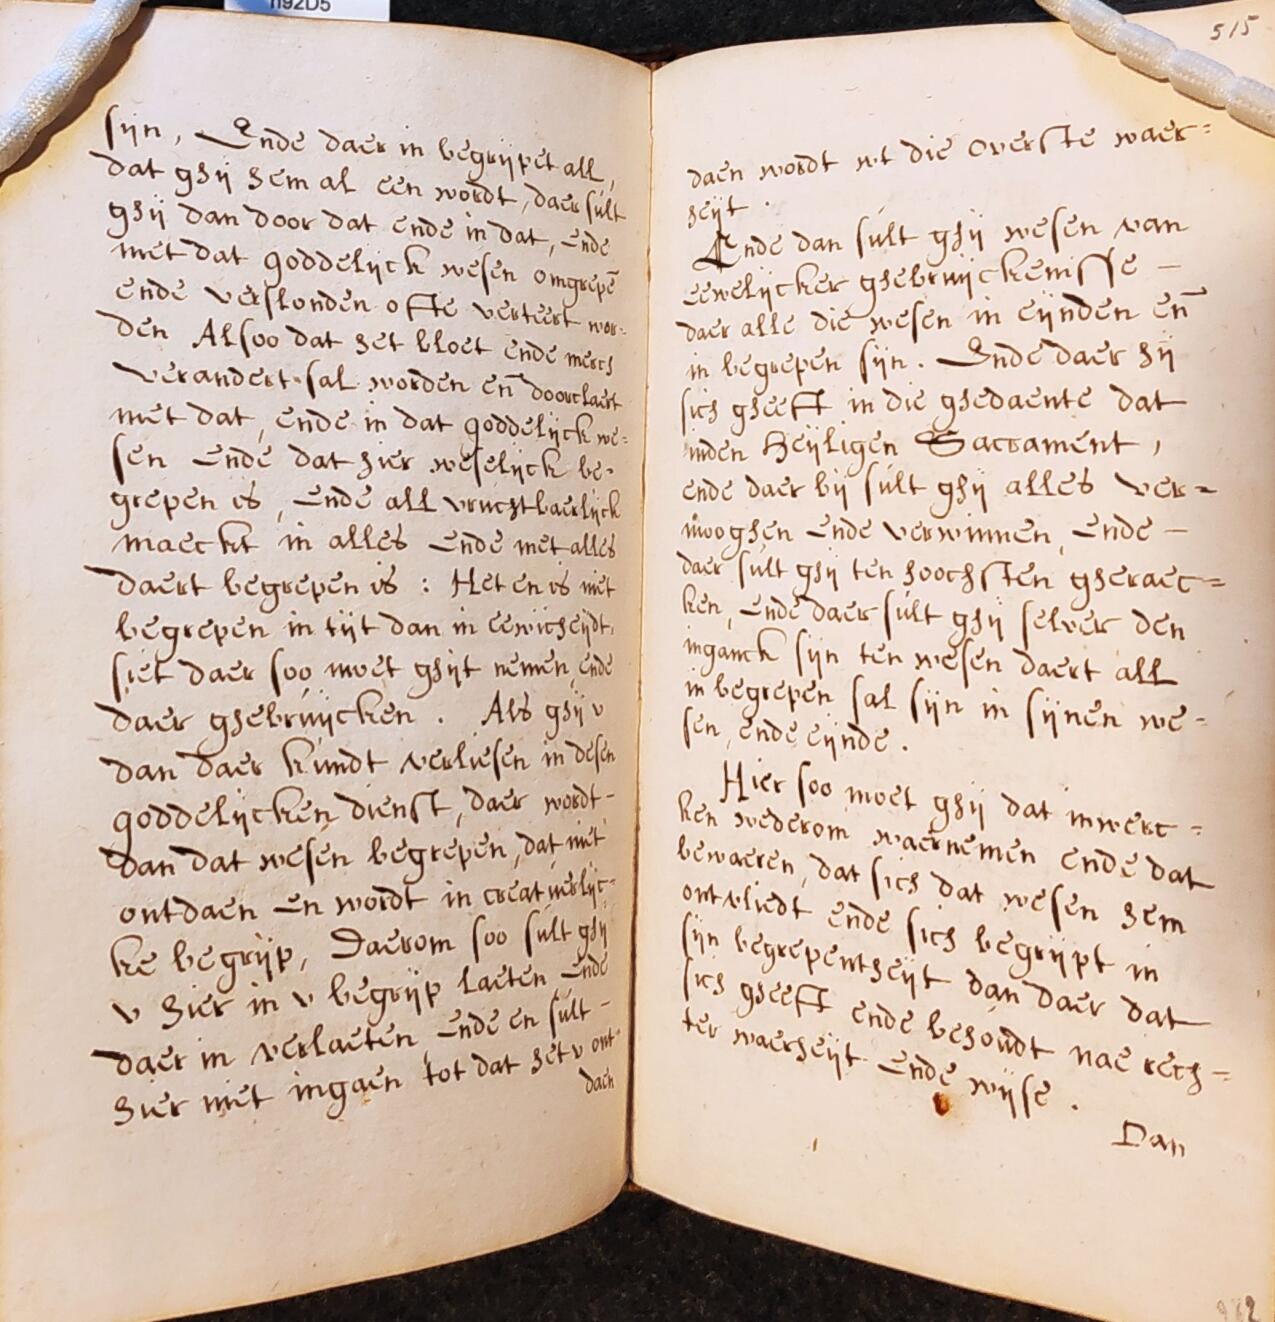 h92D5
sijn, Ende daer in begrijpet all,
dat ghij hem al een wordt, daer sult
ghij dan door dat ende in dat, ende
met dat goddelijck wesen omgrepē
ende verslonden ofte verteert wor=
den Alsoo dat het bloet ende merch
verandert sal worden en̄ doorclaert
met dat, ende in dat goddelijck we=
sen ende dat hier weselijck be-
grepen is, ende all vruchtbaerlijck
maeckt in alles ende met alles
daert begrepen is : Het en is niet
begrepen in tijt dan in eewicheijdt,
siet daer soo moet ghijt nemen, ende
daer ghebruijcken . Als ghij v
dan daer kundt verliesen in desen
goddelijcken dienst, daer wordt-
dan dat wesen begrepen, dat niet
ontdaen en wordt in creatuerlijc-
ke begrijp, Daerom soo sult ghij
v hier in v begrijp laeten, ende
daer in verlaeten, ende en sult -
hier niet ingaen tot dat het v ont-
daen
515
daen wordt wt die overste waer=
heijt .
Ende dan sult ghij wesen van
eewelijcker ghebruijckenisse -
daer alle die wesen in eijnden en̄
in begrepen sijn . Ende daer hij
sich gheeft in die ghedaente dat
inden Heijligen Sacrament,
ende daer bij sult ghij alles ver-
mooghen ende verwinnen, ende -
daer sult ghij ten hoochsten gheraec=
ken, ende daer sult ghij selver den
inganck sijn ten wesen daert all
in begrepen sal sijn in sijnen we-
sen, ende eijnde .
Hier soo moet ghij dat inwerc=
ken wederom waernemen ende dat
bewaeren, dat sich dat wesen hem
ontvliedt ende sich begrijpt in
sijn begrepentheijt dan daer dat
sich gheeft ende behoudt nae rech=
ter waerheijt ende wijse .
Dan